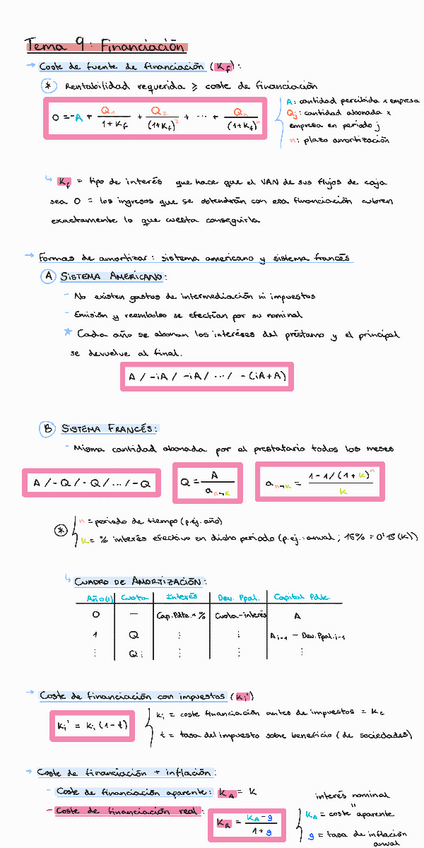 Tema 9: Financiación
→ Coste de fuente de financiación (Kf):
* Rentabilidad requerida ≥ coste de financiación
0 = -A + Q₁/(1+Kf) + Q₂/(1+Kf)² + ... + Qn/(1+Kf)ⁿ
A: cantidad percibida x empresa
Qj: cantidad abonada x
empresa en periodo j
n: plazo amortización
↳ Kf = tipo de interés que hace que el VAN de sus flujos de caja
sea 0 = los ingresos que se obtendrán con esa financiación cubren
exactamente lo que cuesta conseguirla.
→ Formas de amortizar: sistema americano y sistema francés
A SISTEMA AMERICANO:
- No existen gastos de intermediación ni impuestos
- Emisión y reembolso se efectúan por su nominal
* Cada año se abonan los intereses del préstamo y el principal
se devuelve al final.
A / -iA / -iA / ... / -(iA+A)
B SISTEMA FRANCÉS:
- Misma cantidad abonada por el prestatario todos los meses
A / -Q / -Q / ... / -Q
Q = A / a n¬k
a n¬k = (1 - 1/(1+k)ⁿ) / k
* n = periodo de tiempo (p.ej. año)
k = % interés efectivo en dicho periodo (p.ej: anual; 15% = 0'15 (k))
↳ CUADRO DE AMORTIZACIÓN:
Año(i) Cuota Interés Dev. Ppal. Capital Pdte
0 — Cap. Pdte. × % Cuota-interés A
1 Q ⋮ ⋮ Ai-1 - Dev. Ppal.i-1
⋮ Qi ⋮ ⋮ ⋮
→ Coste de financiación con impuestos (Ki')
Ki' = Ki (1-t)
Ki = coste financiación antes de impuestos = Kc
t = tasa del impuesto sobre beneficio (de sociedades)
→ Coste de financiación + inflación:
- Coste de financiación aparente: KA = K
- Coste de financiación real:
KR = (KA - g) / (1 + g)
interés nominal
=
KA = coste aparente
g = tasa de inflación
anual